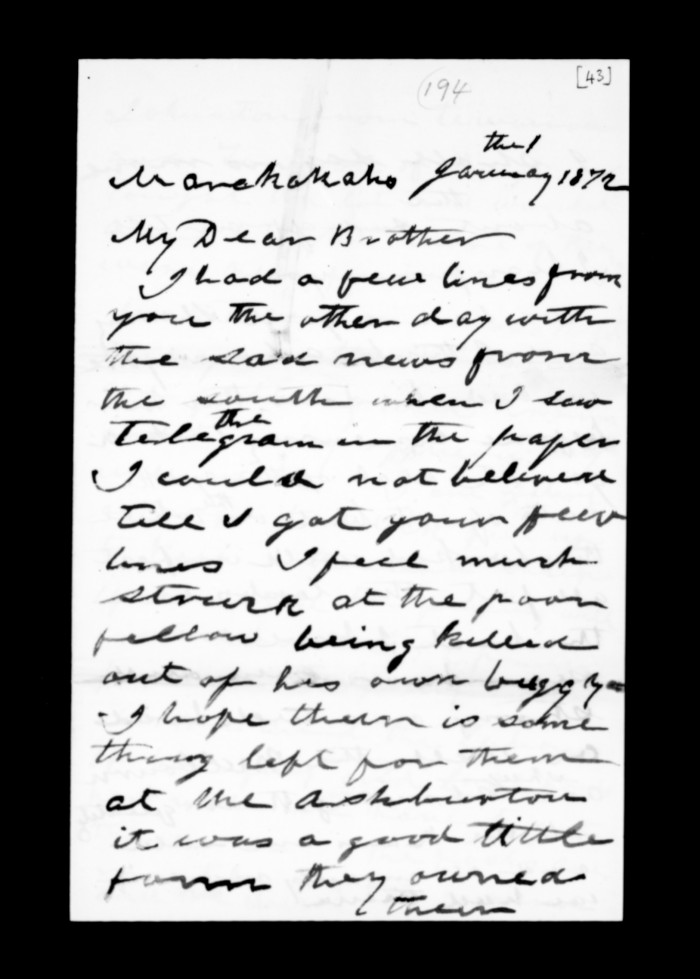 [43]
194
the 1
Marakakaho January 1872
My Dear Brother
I had a few lines from
you the other day with
the sad news from
the south when I saw
the
telegram in the paper
I could not beliver
till I got your few
lines I feel much
struck at the poor
fellow being killed
out of his own buggy
I hope theur is some
thing left for them
at the Ashburton
it was a good little
farm they owned
theur